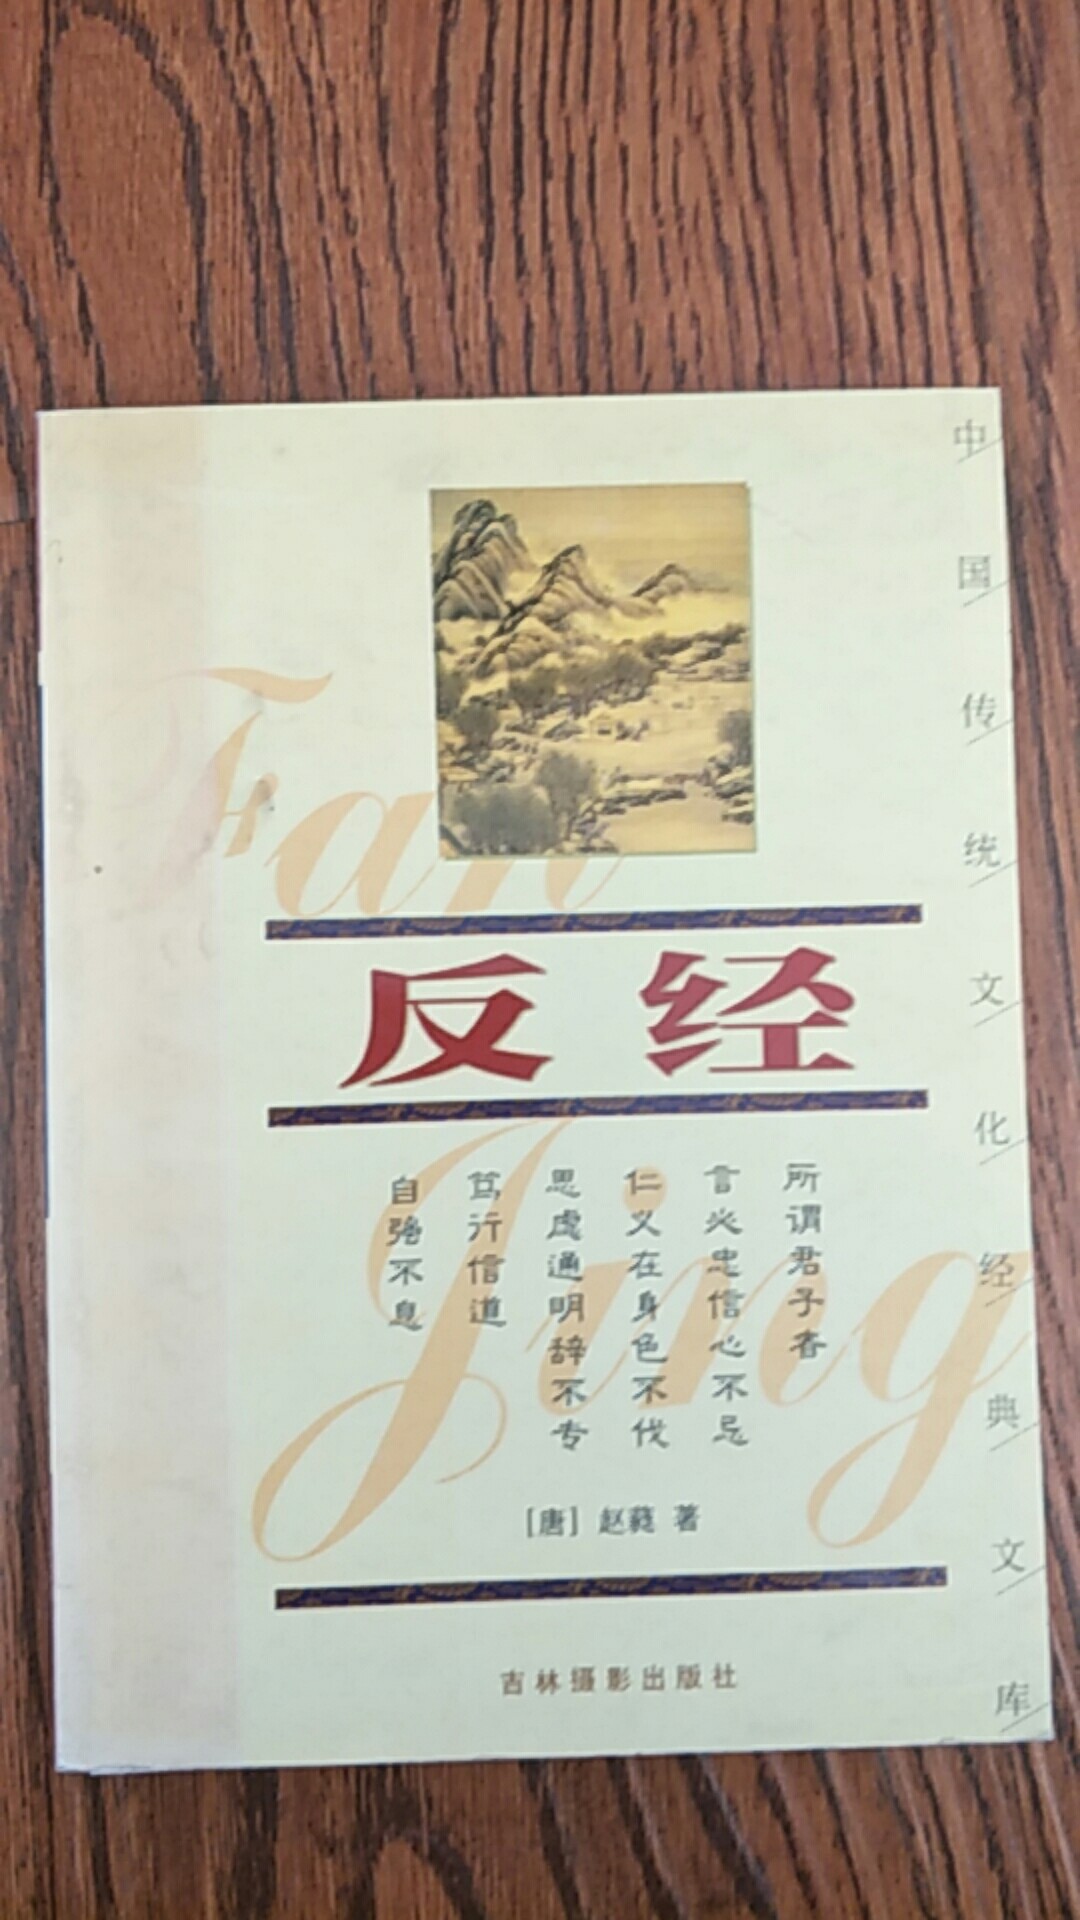 中国传统文化经典文库
Fan
反经
Jing
所谓君子者
言必忠信心不忌
仁义在身色不伐
思虑通明辞不专
笃行信道
自强不息
[唐] 赵蕤 著
吉林摄影出版社